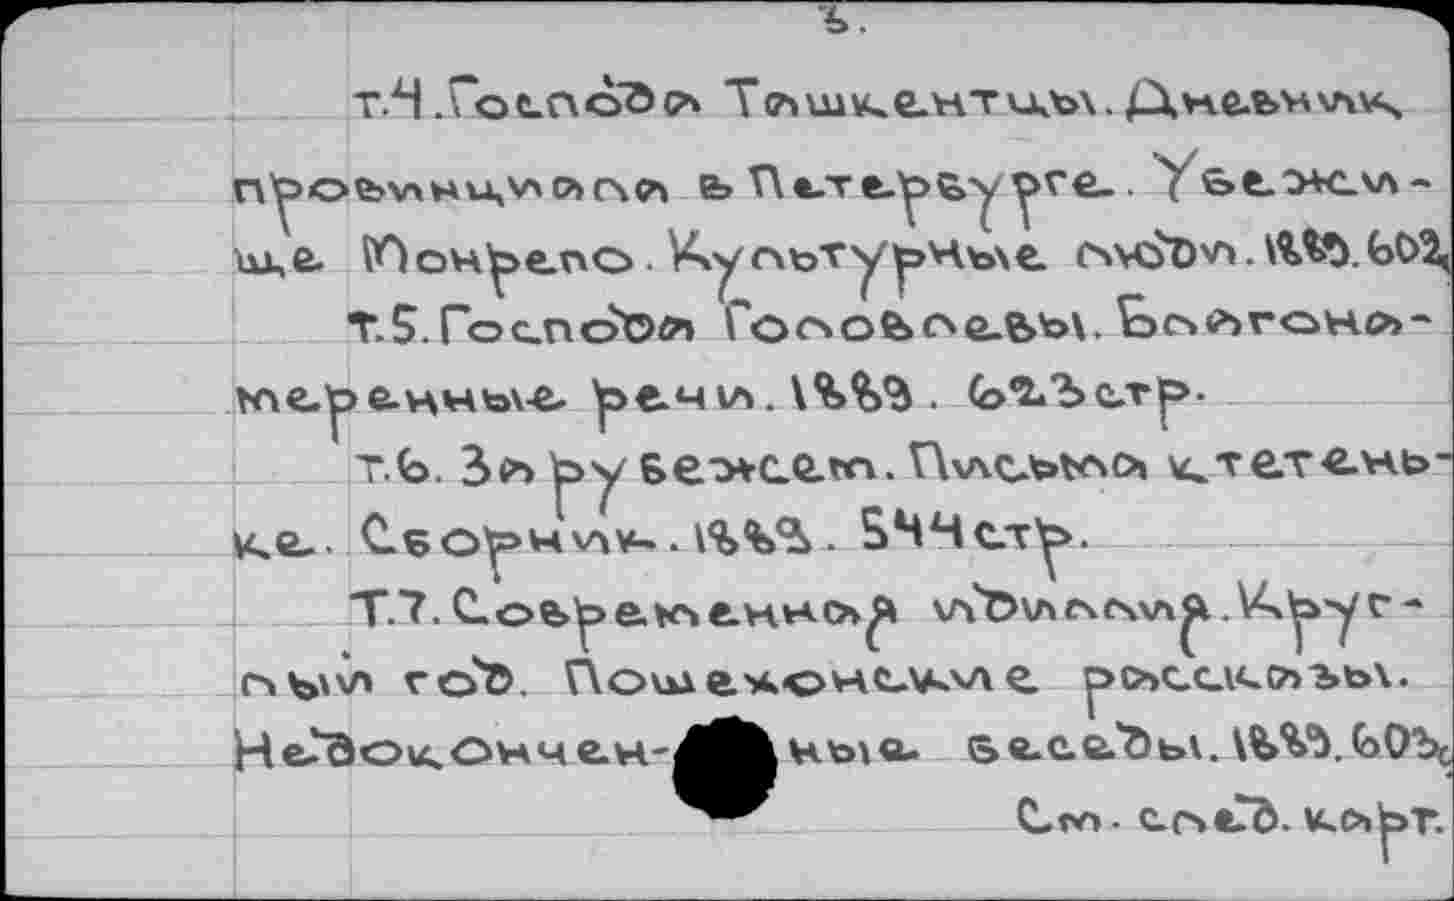 3.
т.4. Господа Ташкентцы. Дневник
провинциала в Петербурге. Убежи-
ще Монрепо. Культурные люди. 1889. 602
т.5. Господа Головлевы. Благона-
меренные речи. 1889. 623 стр.
т.6. За рубежем. Письма к тетень-
ке. Сборник. 1889. 544 стр.
т.7. Современная идиллия. Круг-
лый год. Пошехонские рассказы.
Недокончен-ные беседы. 1889. 603 с
См. след. карт.